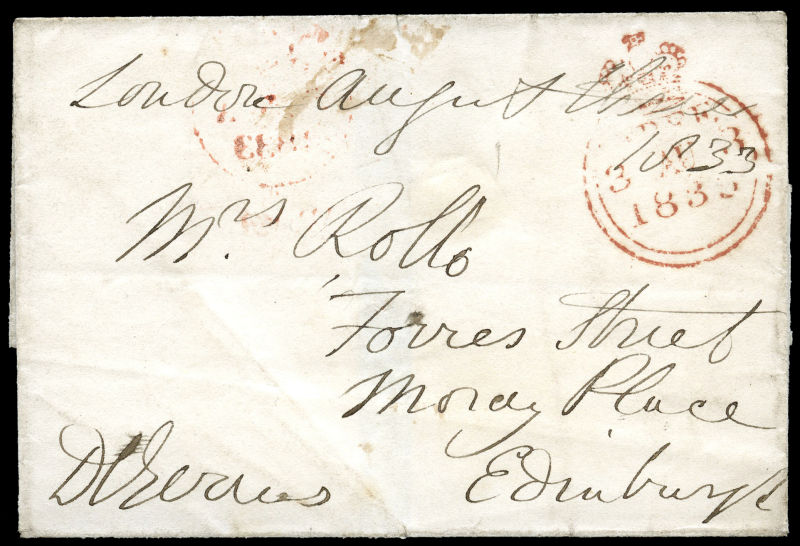 London August three
1833
Mrs Rollo
Forres Street
Moray Place
Edinburgh
3
1833